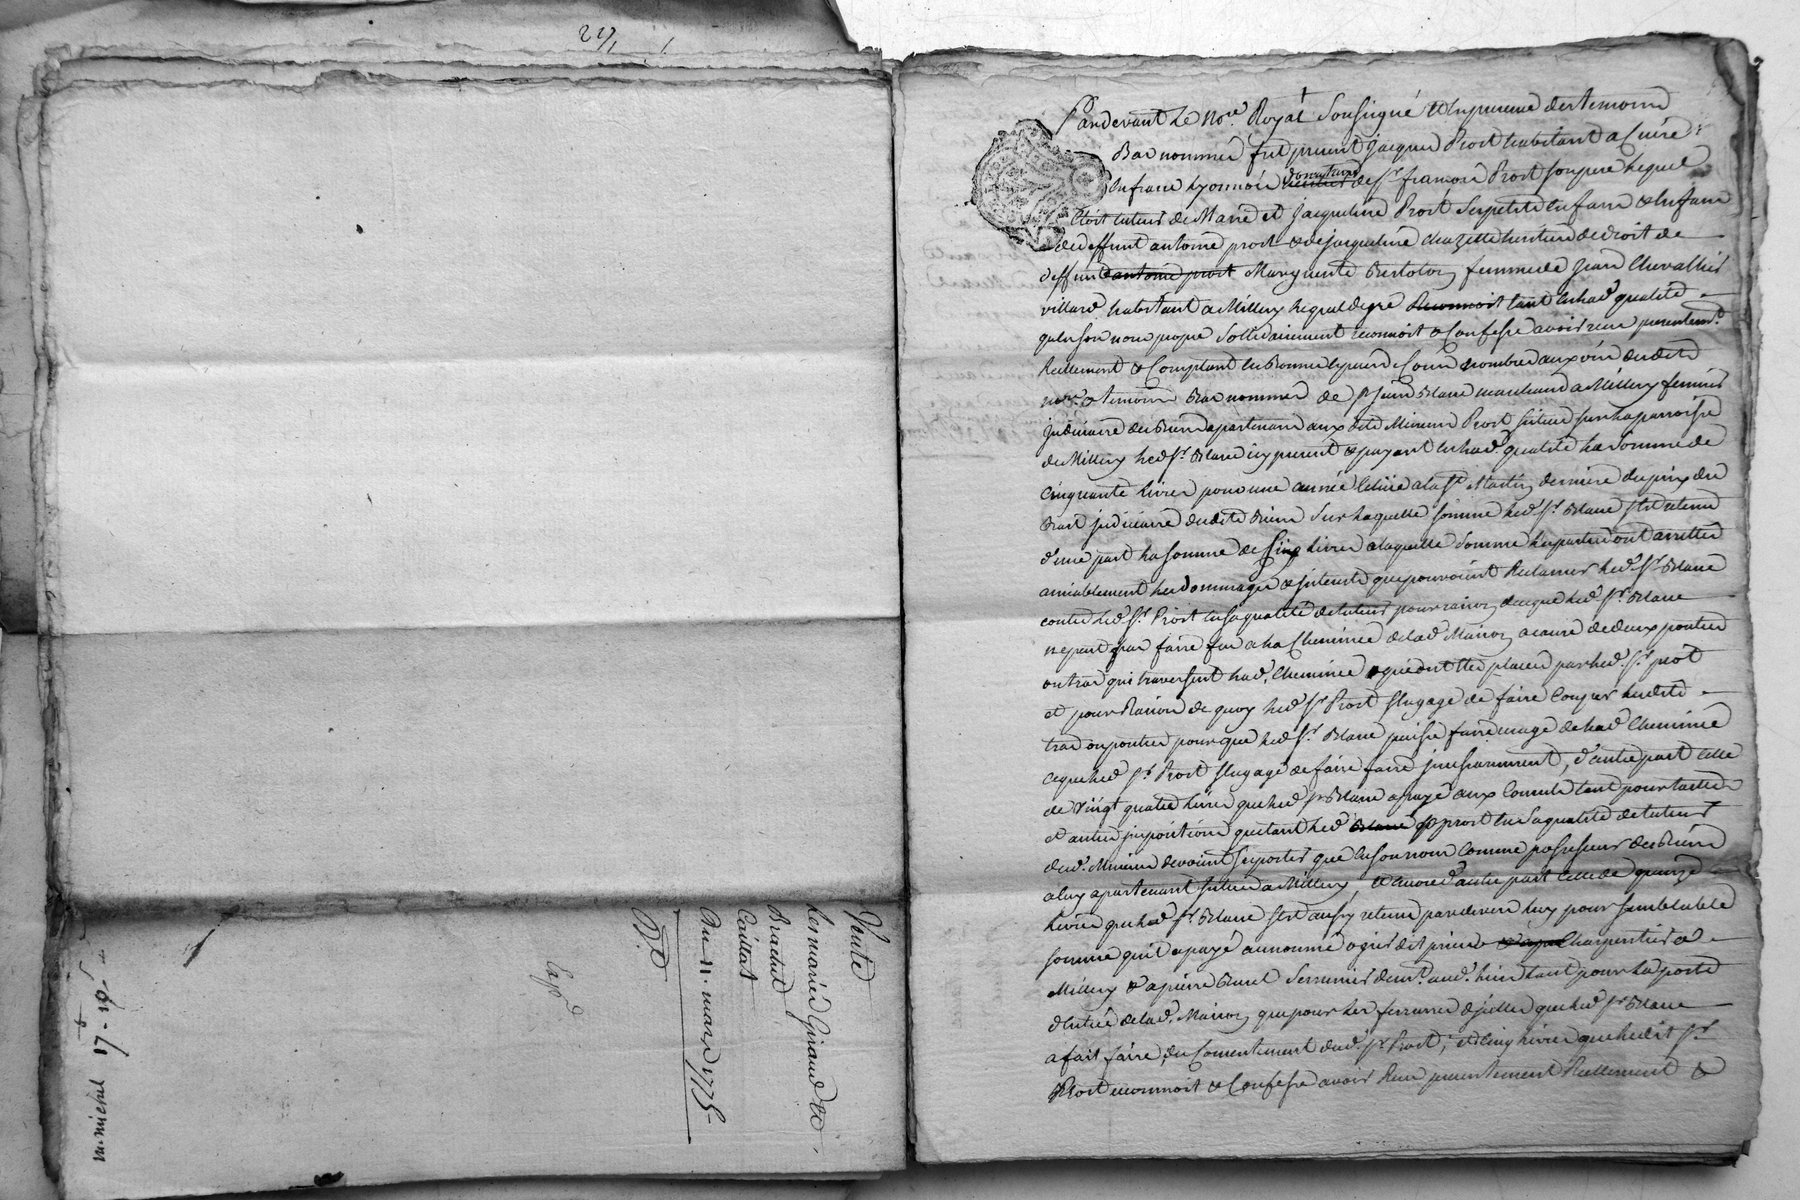 221
Vente
les mariés Giraud &c
Bradurd
Caillat
Du 11. mars 1775
Exp.d
m. michel 17.
Pardevant Le No.re Royal Soussigné & En presence des temoins
Bas nommés fut present Jacques Prost habitant a Cuire
En franc Lyonnois de S.r françois Prost son pere Lequel
Etoit tuteur de Marie et Jacqueline Prost Ses petits Enfans & Enfans
de deffunt antoine prost & de Jacqueline Chazette heritiere de droit de
deffunte antoine prost Marguerite Bertolon femme de Jean Chevallier
habitant a Millery Lequel de gré Reconnoit tant En lad. qualité
qu'en son nom propre Sollidairement reconnoit & Confesse avoir reçu presentem.t
Reellement & Comptant En Bonnes Especes de Cours & nombrées aux vûe desdits
no.re & temoins Bas nommés de S.r Jean Blanc marchand a Millery fermier
Judiciaire des Biens apartenans aux dits Mineurs Prost Situés sur la parroisse
de Millery led. S.r Blanc icy present & payant En lad. qualité La Somme de
Cinquante Livres pour une année Echüe a la S.t Martin derniere du prix du
Bail judiciaire desdits Biens Sur laquelle somme led. S.r Blanc s'est retenu
d'une part la somme de Cinq Livres a laquelle Somme les parties ont arretté
amiablement les dommages & interets que pouvoient Reclamer led. S.r Blanc
contre led. S.r Prost En sa qualité de tuteur pour raison de ce que led. S.r Blanc
ne peut pas faire feu a la Cheminée de lad. Maison a cause de deux poutres
ou tras qui traversent lad. Cheminée & qui ont été placés par led. S.r prost
et pour Raison de quoy led. S.r Prost s'Engage de faire Couper lesdits
tras ou poutres pour que led. S.r Blanc puisse faire usage de lad. Cheminée
ce que led. S.r Prost s'Engage de faire faire incessamment, d'autre part celle
de Vingt quatre Livres que led. S.r Blanc a payé aux Consuls tant pour tailles
et autres impositions que tant led. Blanc S.r prost En Sa qualité de tuteur
desd. Mineurs devoient Supporter que En son nom Comme possesseur des Biens
a luy apartenant Situés a Millery, & Encore d'autre part Celle de quinze
Livres que led. S.r Blanc s'est aussy retenu pardevers luy pour Semblable
somme qu'il a payé au nommé ogier dit prieur Charpentier a
Millery & a pierre Burel Serrurier dem.t aud. Lieu tant pour la porte
d'Entrée de lad. Maison que pour les ferrures d'icelle que led. S.r Blanc
a fait faire, du Consentement dud. S.r Prost; & Cinq Livres que Ledit S.r
Prost reconnoit & Confesse avoir Reçu presentement Reellement &